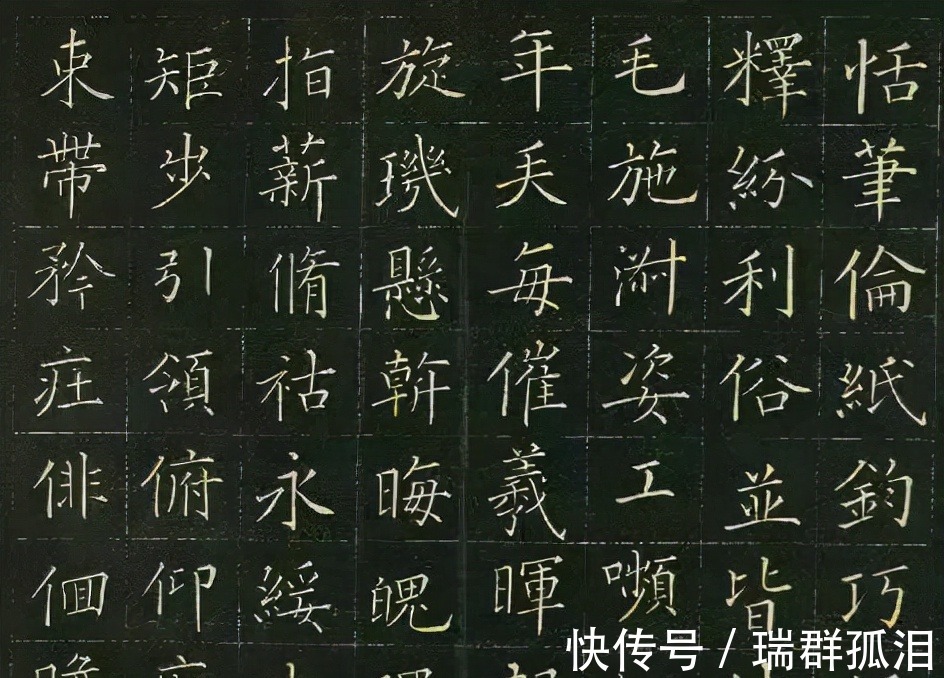 恬筆倫紙鈞巧
釋紛利俗並皆
毛施淑姿工嚬
年矢每催羲暉
旋璣懸斡晦魄
指薪脩祜永綏
矩步引領俯仰
束帶矜莊俳佪
快传号 / 瑞群孤泪